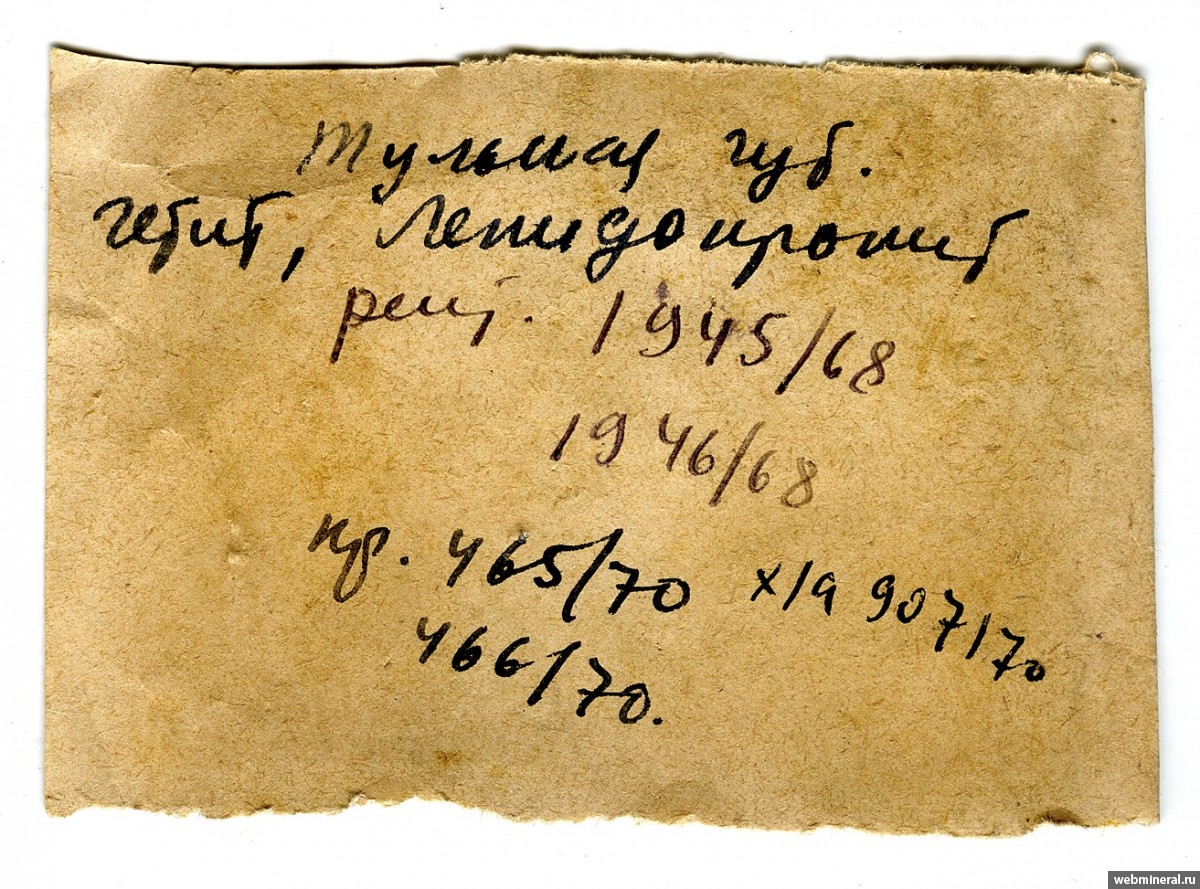 Тульская губ.
гетит, Лепидокрокит
рент. 1945/68
1946/68
кр. 465/70 х/а 907/70
466/70.
webmineral.ru